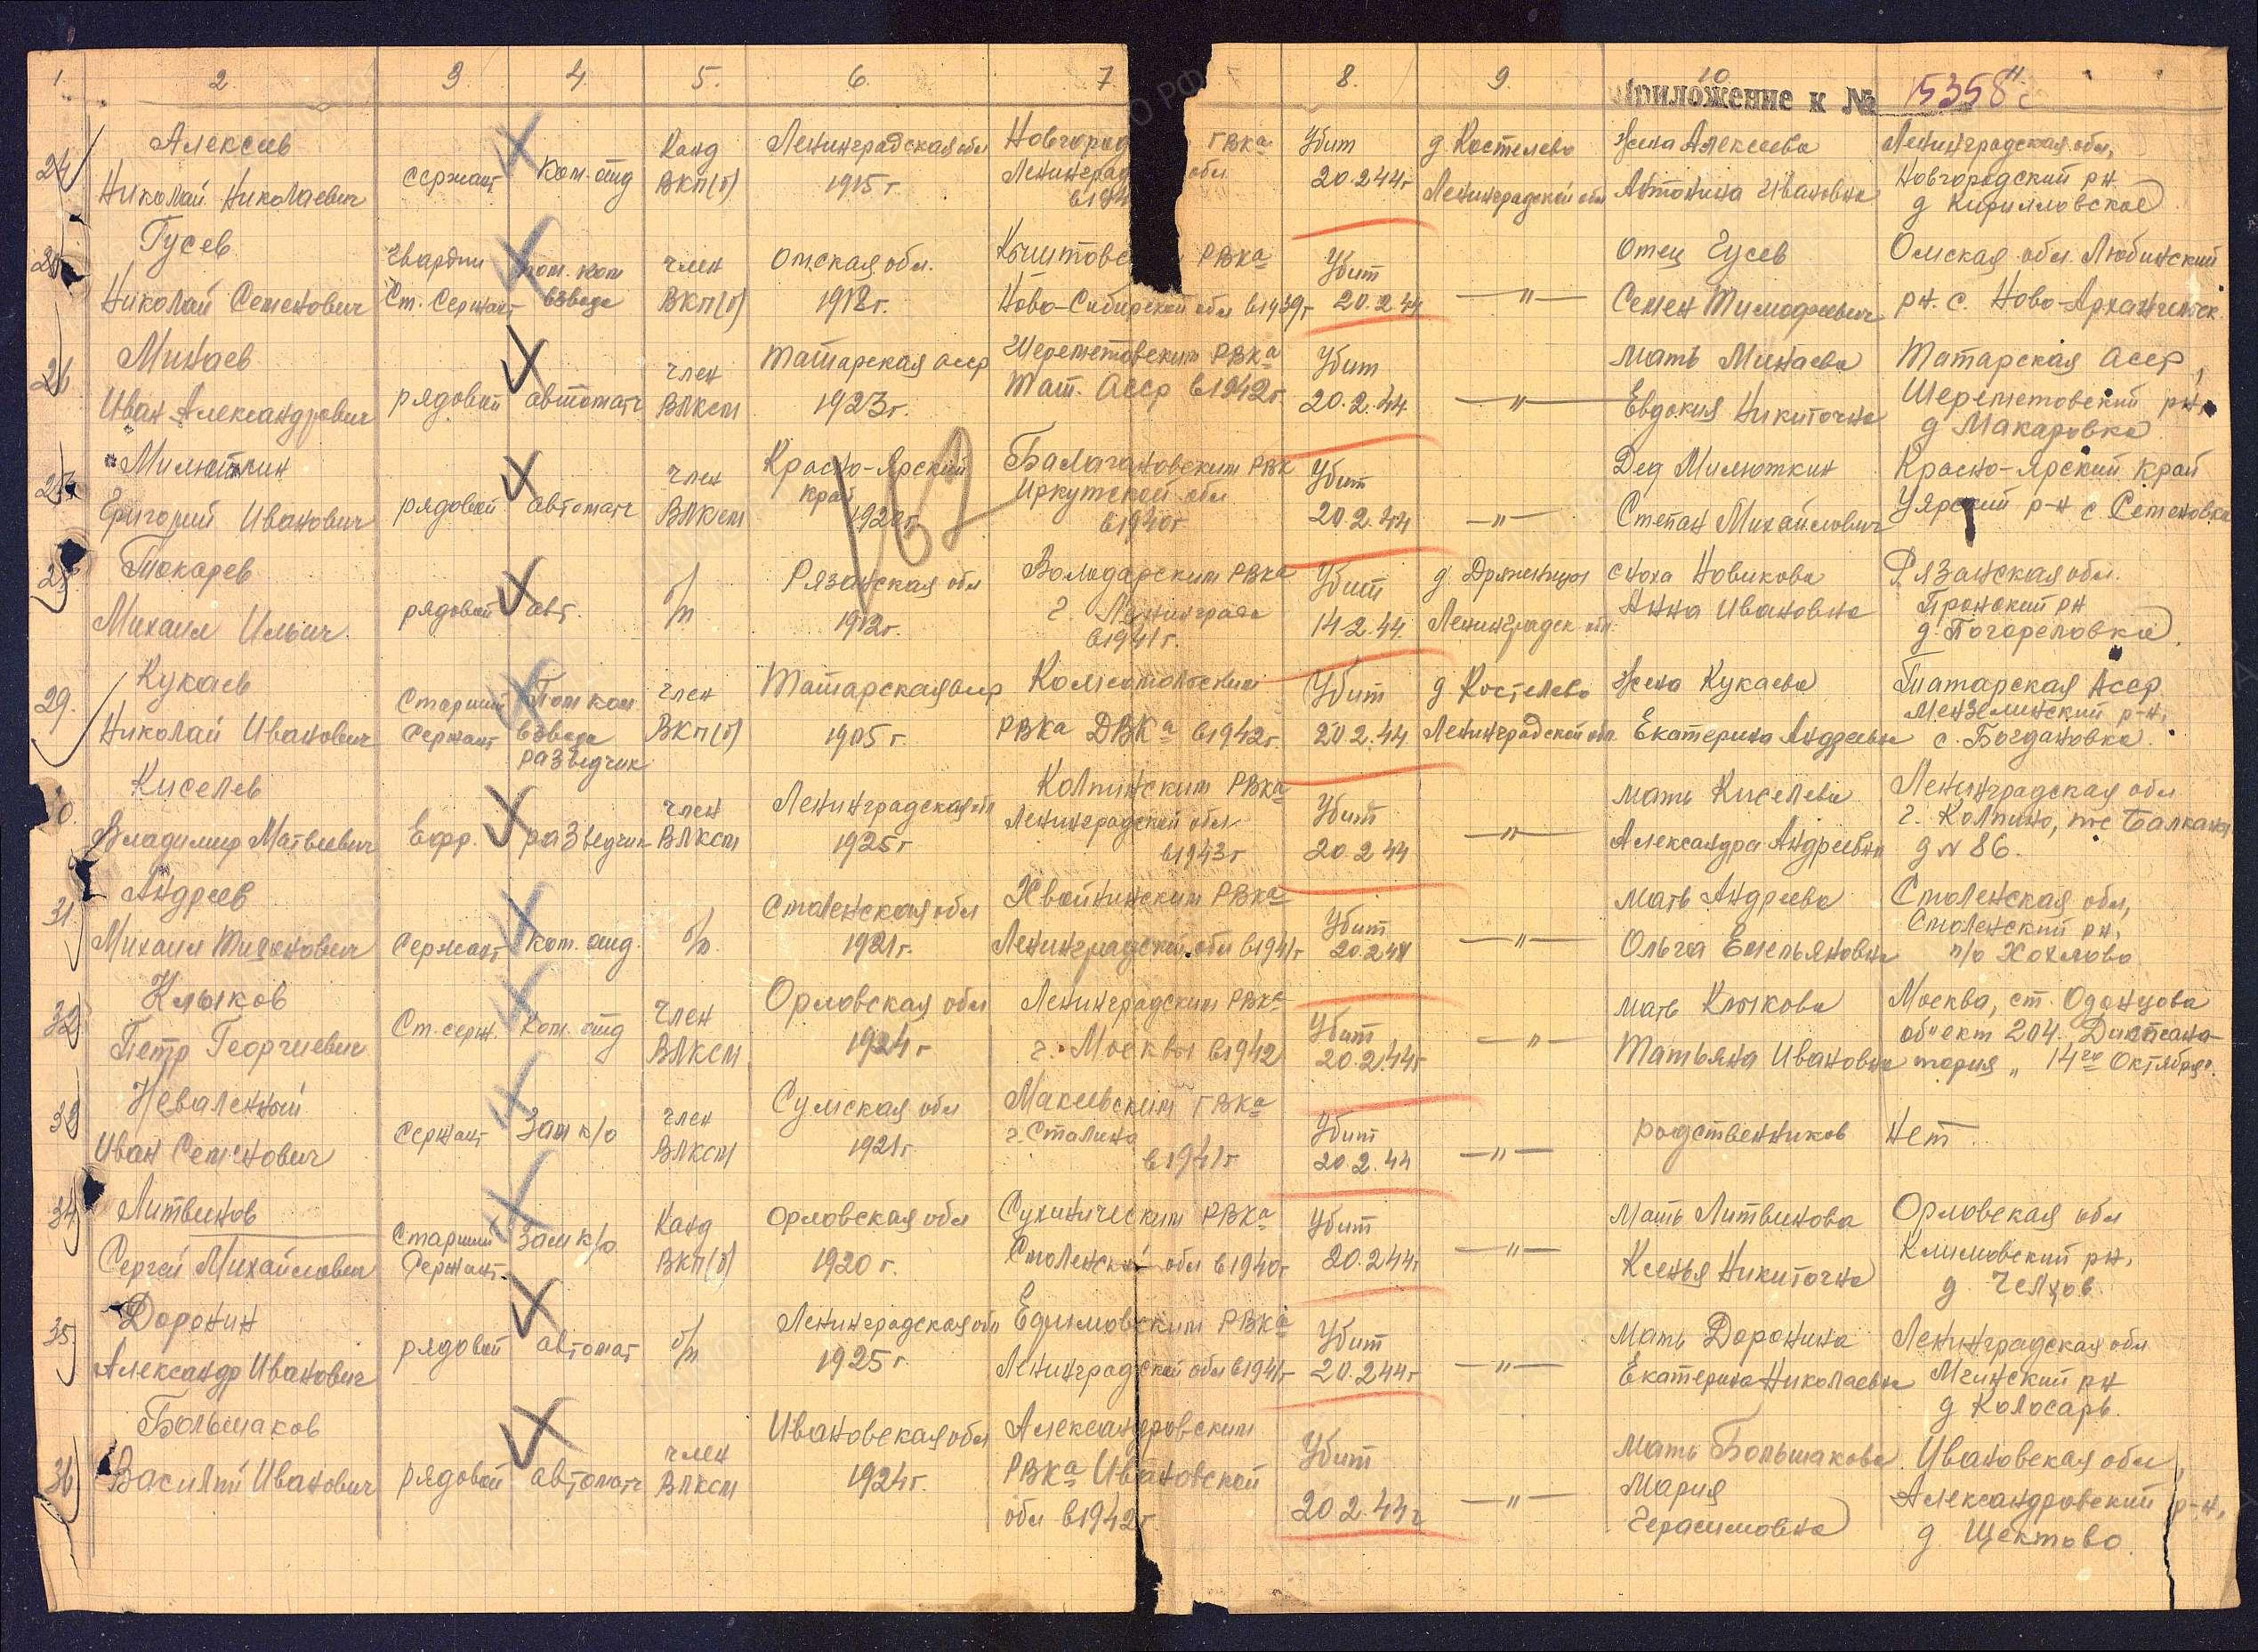 1. 2. 3. 4. 5. 6. 7 8. 9. 10 11.
Приложение к № 15358с
24 Алексеев Николай Николаевич сержант ком. отд Канд ВКП(б) Ленинградская обл 1915 г. Новгород ГВКа Ленинград обл в 194 Убит 20.2.44г д Костелево Ленинградской обл Жена Алексеева Антонина Ивановна Ленинградская обл, Новгородский рн д Кирилловское
25 Гусев Николай Семенович Гвардии Ст. Сержант пом. ком взвода член ВКП(б) Омская обл. 1918г. Кыштовс РВКа Ново-Сибирской обл в1939г Убит 20.2.44 —"— Отец Гусев Семен Тимофеевич Омская обл Любинский рн. с. Ново-Архангельск
26 Минаев Иван Александрович рядовой автоматч член ВЛКСМ Татарская асср 1923г. Шереметовским РВКа Тат. Асср в1942г. Убит 20.2.44 —"— мать Минаева Евдокия Никитична Татарская асср, Шереметовский рн, д Макаровка
27 Милюткин Григорий Иванович рядовой автоматч член ВЛКСМ Красно-Ярский край Балагановским РВК Иркутской обл в1940г Убит 20.2.44 —"— Дед Милюткин Степан Михайлович Красно-Ярский край Уярский р-н с Семеновка
162
28 Токарев Михаил Ильич рядовой авт. б/п Рязанская обл 1912г. Володарским РВКа г. Ленинграда в1941г. Убит 14.2.44. д. Ленинградск обл. сноха Новикова Анна Ивановна Рязанская обл. Пронский рн д. Погореловка.
29. Кукаев Николай Иванович Старший Сержант Пом ком взвода разведчик член ВКП(б) Татарская асср 1905г. РВКа ДВКа в1942г. Убит 20.2.44 д Костелево Ленинградской обл. Жена Кукаева Екатерина Андреевна Татарская Асср Мензелинский р-н, с. Богдановка.
0. Киселев Владимир Матвеевич Ефр. разведчик член ВЛКСМ Ленинградская обл 1925г Колпинским РВКа Ленинградской обл в1943г Убит 20.2.44 —"— мать Киселева Александра Андреевна Ленинградская обл г. Колпино, д № 86.
31. Андреев Михаил Сержант ком. отд. б/п. Смоленская обл 1921г. Хвойнинским РВКа Ленинградской обл в1941г Убит 20.2.44 —"— мать Андреева Ольга Емельяновна Смоленская обл, Смоленский рн, п/о Хохлово
32 Клыков Петр Георгиевич Ст. серж. Ком. отд член ВЛКСМ Орловская обл 1924г Ленинградским РВКа г. Москвы в1942 Убит 20.2.44г —"— мать Клыкова Татьяна Ивановна Москва, ст. Одонцова объект 204. тория „14го Октября".
33 Неваленный Иван Семенович Сержант Зам к/о член ВЛКСМ Сумская обл 1921г Макеевским ГВКа г. Сталина в1941г Убит 20.2.44 —"— родственников нет
34 Литвинов Сергей Михайлович Старший Сержант. Зам к/о. Канд ВКП(б) Орловская обл 1920 г. Сухиническим РВКа Смоленской обл в1940г Убит 20.2.44г —"— Мать Литвинова Ксенья Никитична Орловская обл Климовский рн, д. Челхов.
35 Доронин Александр Иванович рядовой автомат б/п Ленинградская обл 1925 г. РВКа Ленинградской обл в1941г Убит 20.2.44г —"— Мать Доронина Екатерина Николаевна Ленинградская обл Мгинский рн д Колосарь.
36 Большаков Василий Иванович рядовой автоматч член ВЛКСМ Ивановская обл 1924г. Александровским РВКа Ивановской обл в1942г. Убит 20.2.44г —"— мать Большакова Мария Герасимовна Ивановская обл, Александровский р-н, д Щектово.